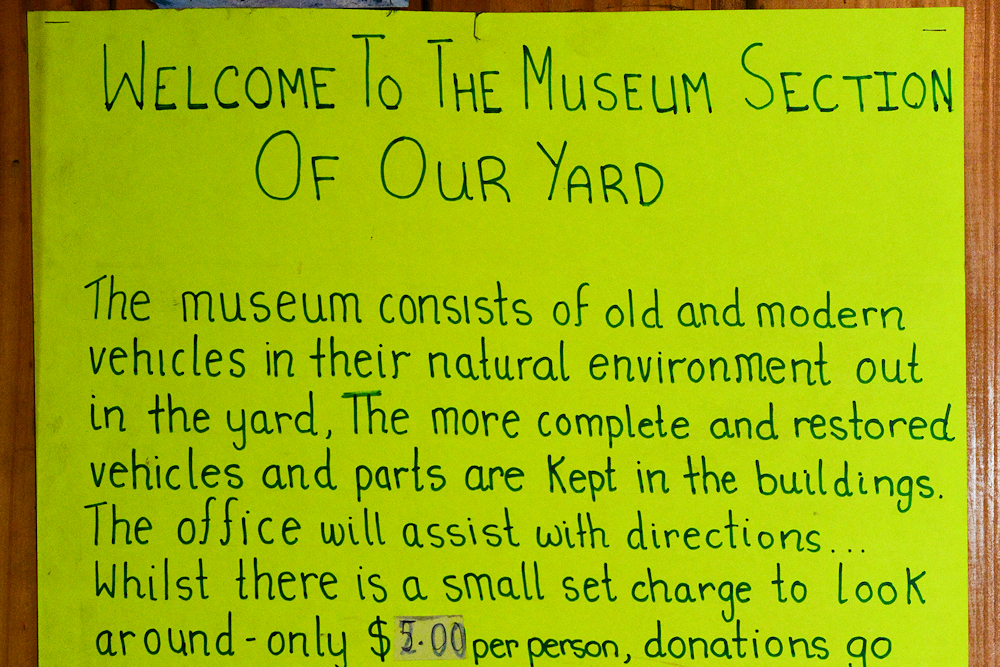 WELCOME TO THE MUSEUM SECTION
OF OUR YARD
The museum consists of old and modern
vehicles in their natural environment out
in the yard, The more complete and restored
vehicles and parts are Kept in the buildings.
The office will assist with directions...
Whilst there is a small set charge to look
around - only $5.00 per person, donations go